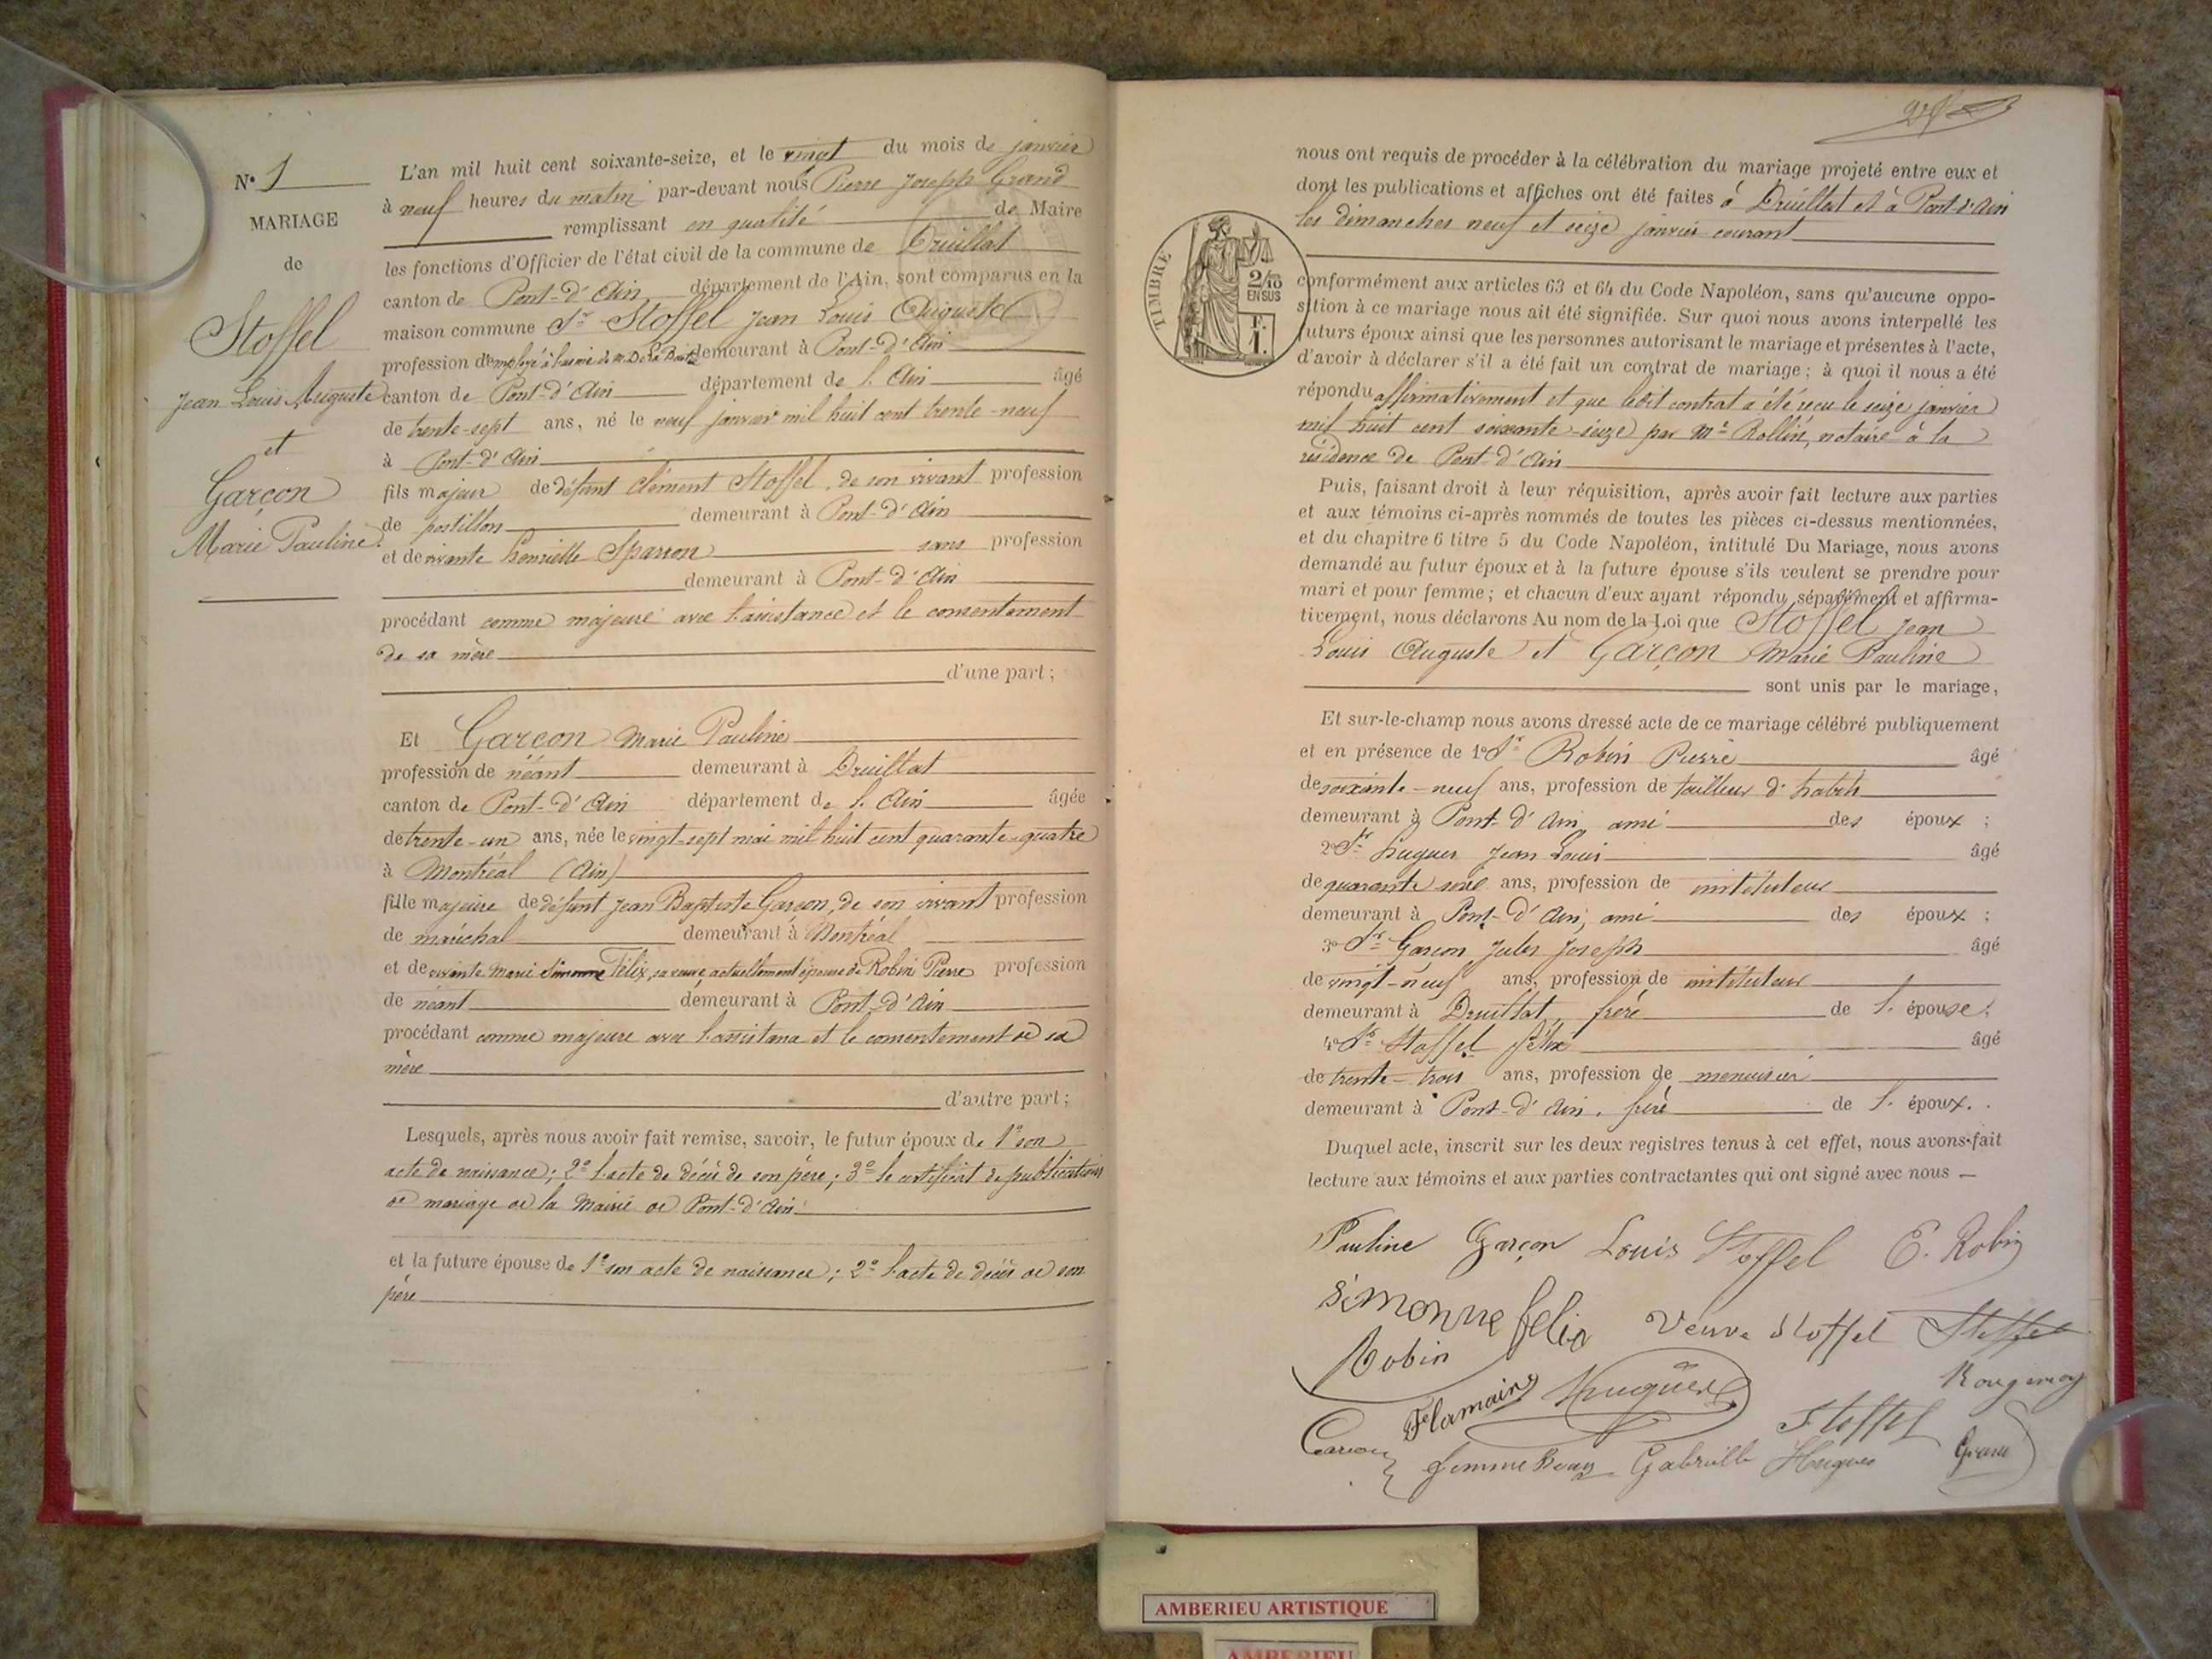 N° 1
MARIAGE
de
Stoffel
Jean Louis Auguste
et
Garçon
Marie Pauline.
L'an mil huit cent soixante-seize, et le vingt du mois de janvier
à neuf heures du matin par-devant nous Pierre Joseph Grand
remplissant en qualité de Maire
les fonctions d'Officier de l'état civil de la commune de Druillat
canton de Pont-d'Ain département de l'Ain, sont comparus en la
maison commune Sr Stoffel Jean Louis Auguste
profession d'employé à l'usine de Mr De la demeurant à Pont-d'Ain
canton de Pont-d'Ain département de l'Ain âgé
de trente-sept ans, né le neuf janvier mil huit cent trente-neuf
à Pont-d'Ain
fils majeur de défunt Clément Stoffel, de son vivant profession
de postillon demeurant à Pont-d'Ain
et de vivante henriette Sparron sans profession
demeurant à Pont-d'Ain
procédant comme majeure avec l'assistance et le consentement
de sa mère
d'une part;
Et Garçon Marie Pauline
profession de néant demeurant à Druillat
canton de Pont-d'Ain département de l'Ain âgée
de trente-un ans, née le vingt-sept mai mil huit cent quarante-quatre
à Montréal (Ain)
fille majeure de défunt Jean Baptiste Garçon, de son vivant profession
de maréchal demeurant à Montréal
et de vivante Marie Simonne Félix, sa veuve, actuellement épouse de Robin Pierre profession
de néant demeurant à Pont-d'Ain
procédant comme majeure avec l'assistance et le consentement de sa
mère
d'autre part;
Lesquels, après nous avoir fait remise, savoir, le futur époux de 1° son
acte de naissance; 2° l'acte de décès de son père; 3° le certificat de publications
de mariage de la Mairie de Pont-d'Ain
et la future épouse de 1° son acte de naissance; 2° l'acte de décès de son
père
nous ont requis de procéder à la célébration du mariage projeté entre eux et
dont les publications et affiches ont été faites à Druillat et à Pont-d'Ain
les dimanches neuf et seize janvier courant
TIMBRE
2/10
EN SUS
conformément aux articles 63 et 64 du Code Napoléon, sans qu'aucune oppo-
sition à ce mariage nous ait été signifiée. Sur quoi nous avons interpellé les
futurs époux ainsi que les personnes autorisant le mariage et présentes à l'acte,
d'avoir à déclarer s'il a été fait un contrat de mariage; à quoi il nous a été
répondu affirmativement et que ledit contrat a été reçu le seize janvier
mil huit cent soixante-seize par Me Rollin, notaire à la
résidence de Pont-d'Ain
Puis, faisant droit à leur réquisition, après avoir fait lecture aux parties
et aux témoins ci-après nommés de toutes les pièces ci-dessus mentionnées,
et du chapitre 6 titre 5 du Code Napoléon, intitulé Du Mariage, nous avons
demandé au futur époux et à la future épouse s'ils veulent se prendre pour
mari et pour femme; et chacun d'eux ayant répondu séparément et affirma-
tivement, nous déclarons Au nom de la Loi que Stoffel Jean
Louis Auguste et Garçon Marie Pauline
sont unis par le mariage,
Et sur-le-champ nous avons dressé acte de ce mariage célébré publiquement
et en présence de 1° Sr Robin Pierre âgé
de soixante-neuf ans, profession de tailleur d'habits
demeurant à Pont-d'Ain, ami des époux;
2° Sr Hugues Jean Louis âgé
de quarante ans, profession de instituteur
demeurant à Pont-d'Ain, ami des époux;
3° Sr Garçon Jules Joseph âgé
de vingt-neuf ans, profession de instituteur
demeurant à Druillat, frère de l'épouse;
4° Sr Stoffel félix âgé
de trente-trois ans, profession de menuisier
demeurant à Pont-d'Ain, frère de l'époux.
Duquel acte, inscrit sur les deux registres tenus à cet effet, nous avons fait
lecture aux témoins et aux parties contractantes qui ont signé avec nous —
Pauline Garçon Louis Stoffel E. Robin
Simonne felix Veuve Stoffel Stoffel
Robin Flamain Hugues Rougemont
Garçon Stoffel
femme Gabrielle Hugues Grand
AMBERIEU ARTISTIQUE
AMBERIEU